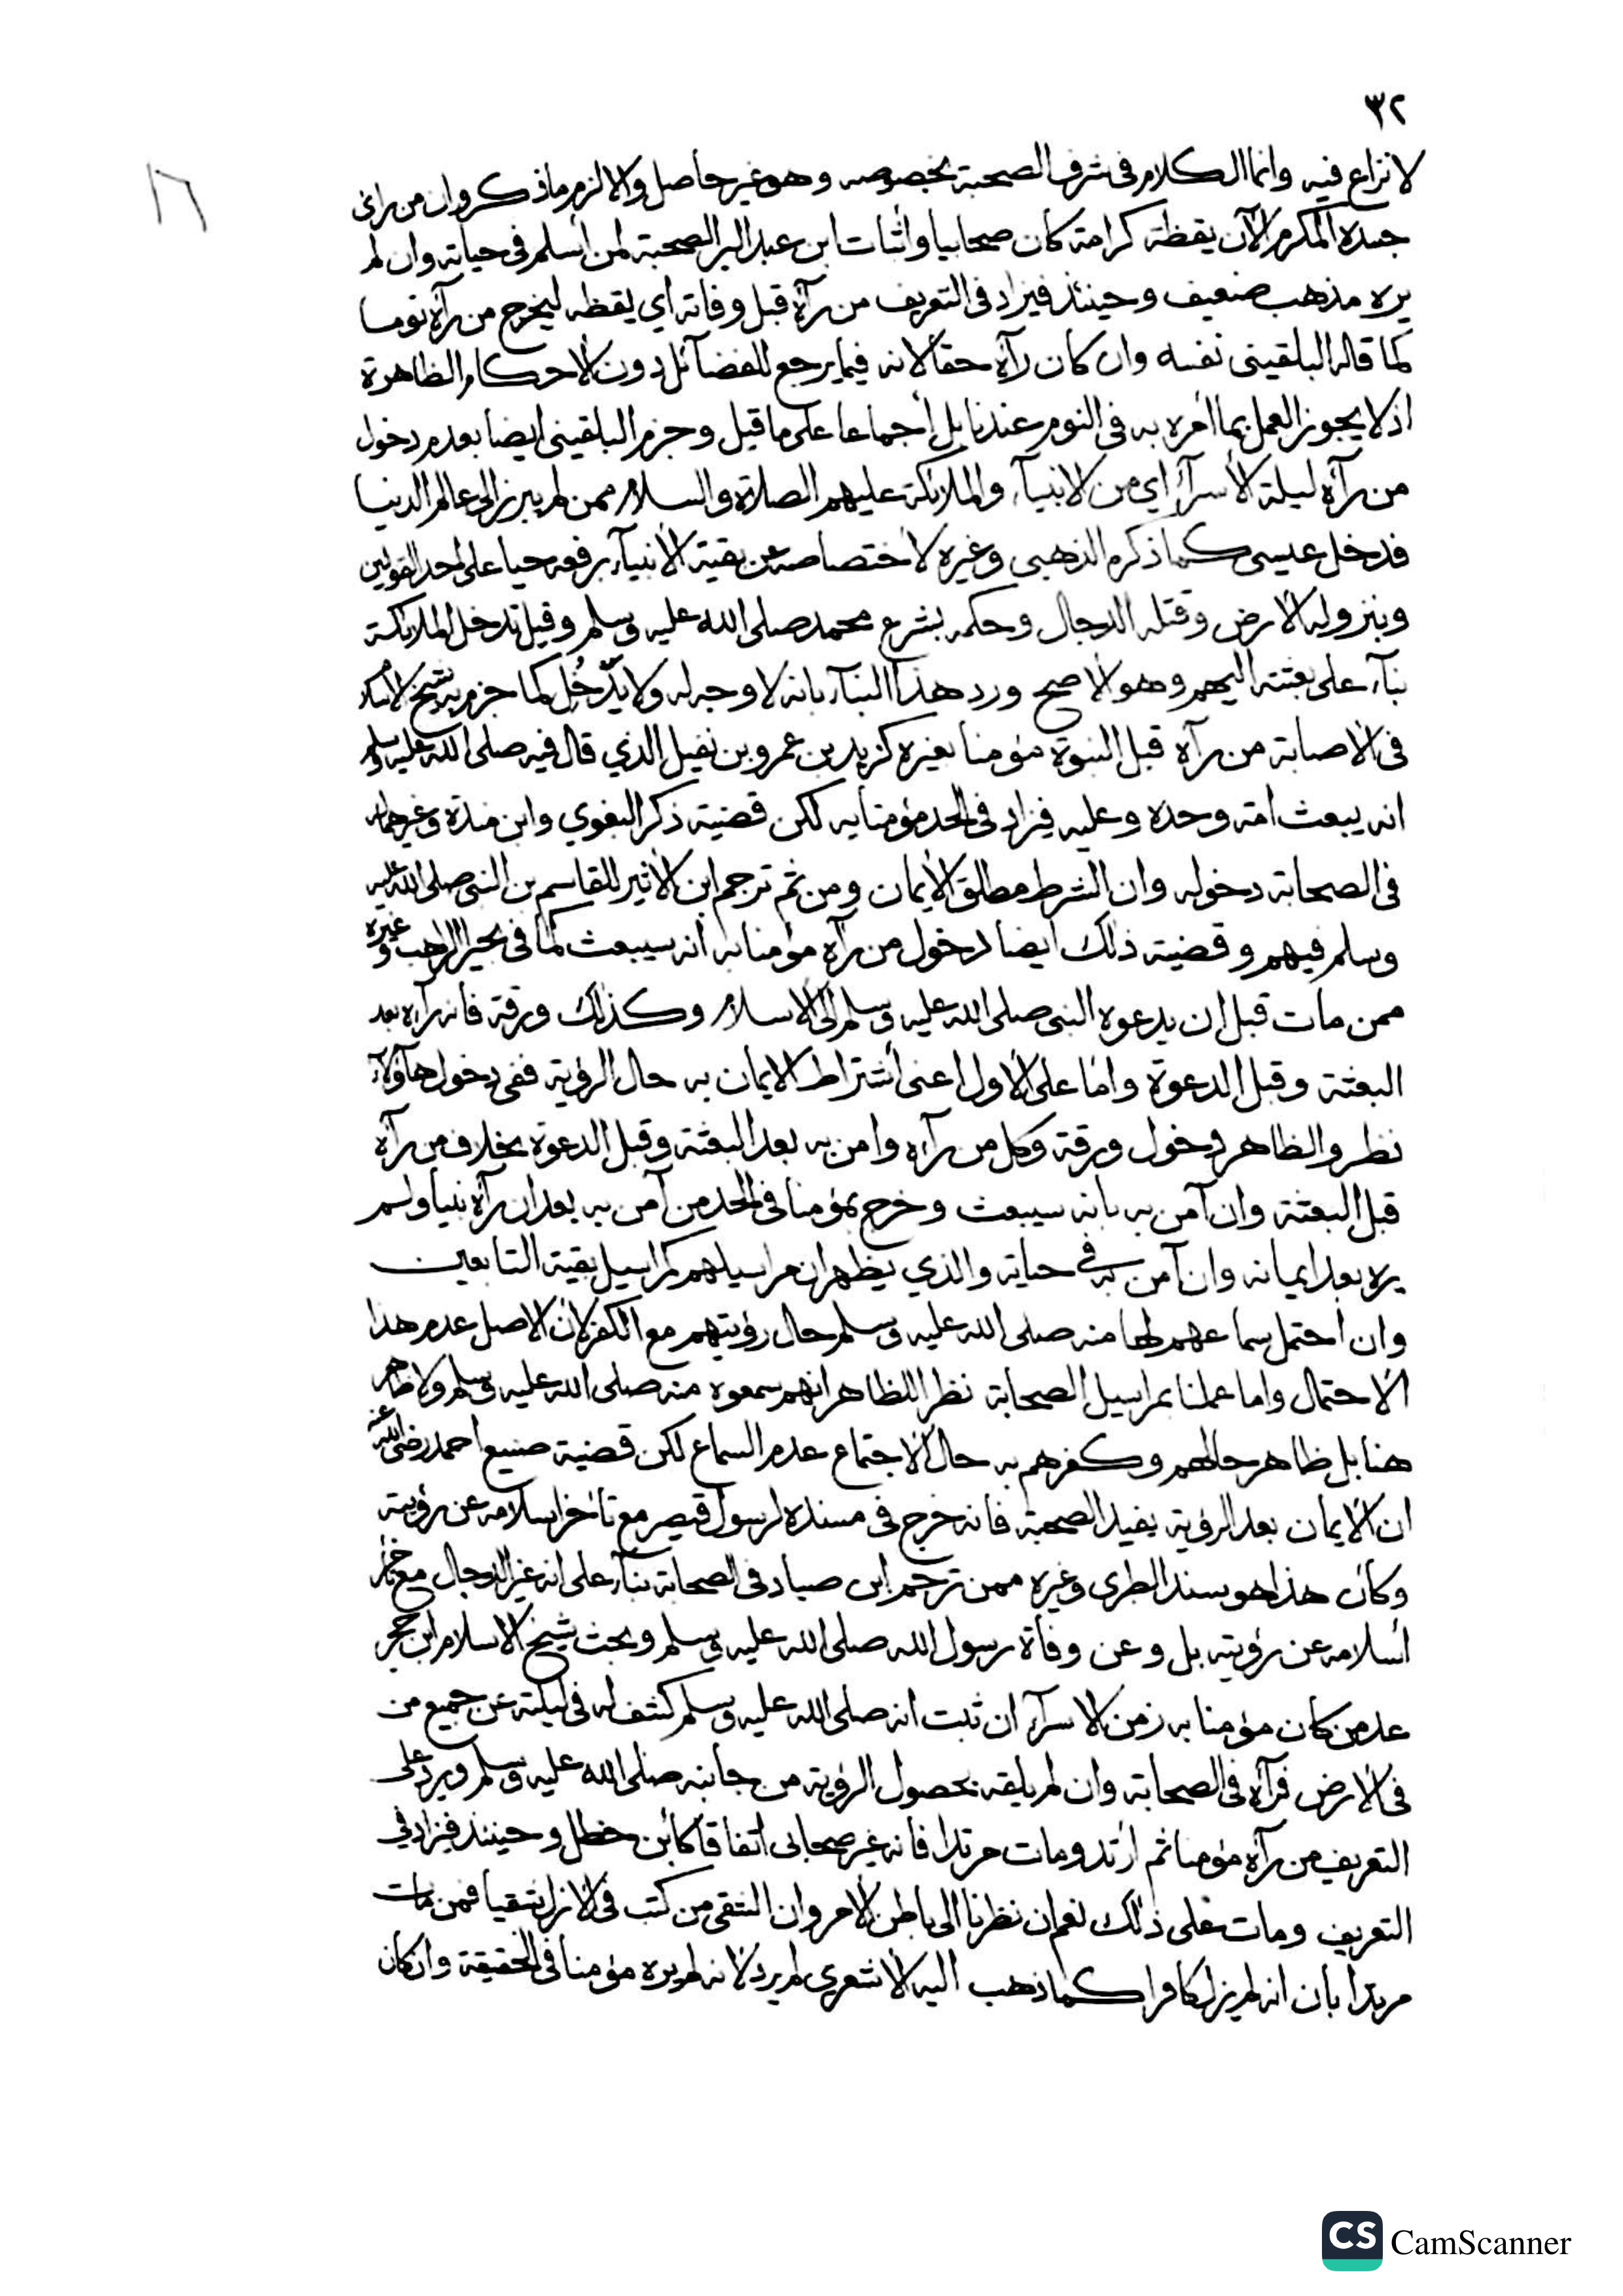 ٣٢
١٦
لا نزاع فيه وانما الكلام فى شرف الصحبة بخصوصه وهو غير حاصل والا لزم ما ذكر وان من راى
جسده المكرم الآن يقظة كرامة كان صحابيا واثبات ابن عبد البر الصحبة لمن أسلم فى حياته وان لم
يره مذهب ضعيف وحينئذ فيزاد فى التعريف من رآه قبل وفاته اي يقظه ليخرج من رآه نوما
كما قاله البلقينى نفسه وان كان رآه حقا لانه فيما يرجع للفضآئل دون الأحكام الظاهرة
اذ لا يجوز العمل بما أمره به فى النوم عندنا بل أجماعا على ما قيل وجزم البلقينى ايضا بعدم دخول
من رآه ليلة الأسرآء اي من الانبيآء والملائكة عليهم الصلاة والسلام ممن لم يبرز الى عالم الدنيا
فدخل عيسى كما ذكره الذهبى وغيره لأختصاصه عن بقية الأنبيآء برفعه حيا على احد القولين
وبنزوله الارض وقتله الدجال وحكمه بشرع محمد صلى الله عليه وسلم وقيل تدخل الملائكة
بنآء على بعثته اليهم وهو الأصح ورد هذا البنآء بانه لا وجه له ولا يدخل كما جزم به شيخ الاسلام
فى الاصابة من رآه قبل النبوة مؤمنا بغيره كزيد بن عمرو بن نفيل الذي قال فيه صلى الله عليه وسلم
انه يبعث أمة وحده وعليه فيزاد فى الحد مؤمنا به لكن قضية ذكر البغوي وابن مندة وغيرهما له
فى الصحابة دخوله وان الشرط مطلق الأيمان ومن ثم ترجم ابن الأثير للقاسم بن النبى صلى الله عليه
وسلم فيهم وقضية ذلك ايضا دخول من رآه مؤمنا به انه سيبعث كما فى بحيرا الراهب وغيره
ممن مات قبل ان يدعوه النبى صلى الله عليه وسلم الى الاسلام وكذلك ورقة فانه رآه بعد
البعثة وقبل الدعوة واما على الأول اعنى أشتراط الايمان به حال الرؤية ففى دخول هآؤلآء
نظر والظاهر دخول ورقة وكل من رآه وامن به بعد البعثة وقبل الدعوة بخلاف من رآه
قبل البعثة وان آمن به بانه سيبعث وخرج بمؤمنا فى الحد من آمن به بعد ان رآه نبيا ولم
يره بعد ايمانه وان آمن به في حياته والذي يظهر ان مراسيلهم كمراسيل بقية التابعين
وان أحتمل سماعهم لها منه صلى الله عليه وسلم حال رؤيتهم مع الكفر لان الاصل عدم هذا
الأحتمال واما عملنا بمراسيل الصحابة نظرا للظاهر انهم سمعوه منه صلى الله عليه وسلم ولا ظاهر
هنا بل ظاهر حالهم وكفرهم به حال الاجتماع عدم السماع لكن قضية صنيع احمد رضى الله عنه
ان الأيمان بعد الرؤية يفيد الصحبة فانه خرج فى مسنده لرسول قيصر مع تأخر اسلامه عن رؤيته
وكان هذا هو سند الطبرى وغيره ممن ترجم ابن صياد فى الصحابة بنآء على انه غير الدجال مع تأخر
أسلامه عن رؤيته بل وعن وفاة رسول الله صلى الله عليه وسلم وبحث شيخ الاسلام ابن حجر
عد من كان مؤمنا به زمن الاسرآء ان ثبت انه صلى الله عليه وسلم كشف له فى ليلته عن جميع من
فى الأرض فرآه فى الصحابة وان لم يلقه بحصول الرؤية من جانبه صلى الله عليه وسلم ويرد على
التعريف من رآه مؤمنا ثم ارتد ومات مرتدا فانه غير صحابى اتفاقا كابن خطل وحينئذ فيزاد في
التعريف ومات على ذلك نعم ان نظرنا الى باطن الأمر وان الشقى من كتب فى الازل شقيا فمن مات
مرتدا بان انه لم يزل كافرا كما ذهب اليه الأشعري لم يرد لأنه لم يره مؤمنا فى الحقيقة وان كان
CS CamScanner